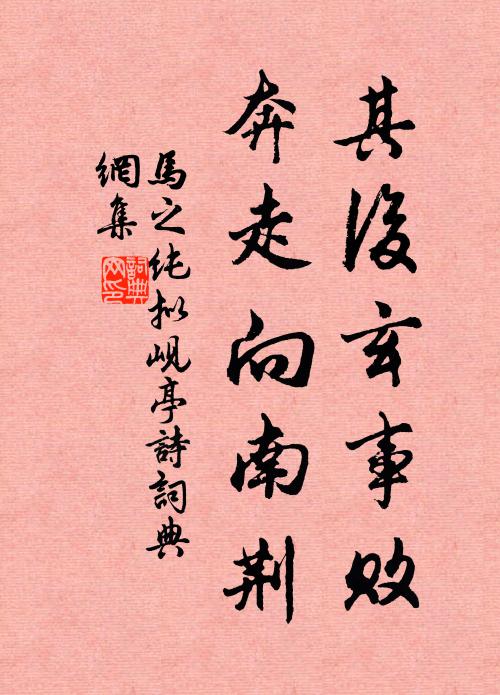 其後玄事敗
奔走向南荆
馬之純拟峴亭詩詞典
網集
詞典網印